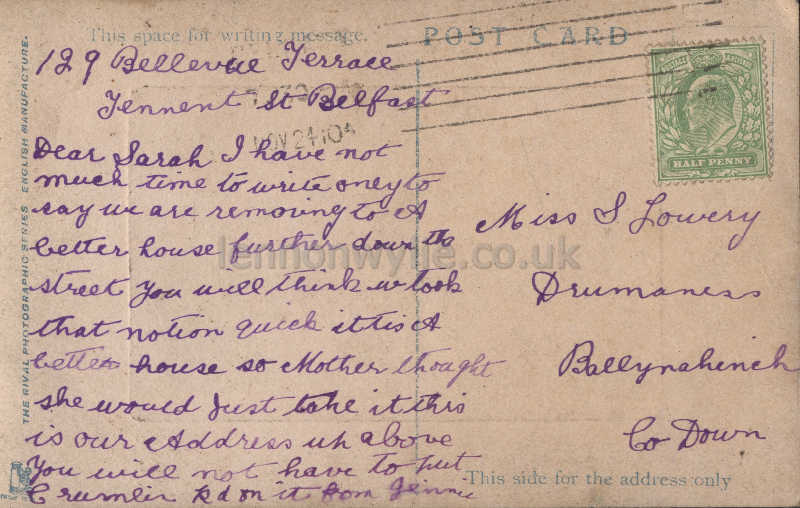 This space for writing message.
POST CARD
129 Bellevue Terrace
Tennent St Belfast
NOV 24 10
HALF PENNY
Dear Sarah I have not
much time to write oney to
say we are removing to A
better house further down the
street You will think we took
that notion quick it tis A
better house so Mother thought
she would Just take it this
is our Address up above
You will not have to put
Crumlin Rd on it from Jennie
Miss S Lowery
Drumaness
Ballynahinch
Co Down
This side for the address only
THE RIVAL PHOTOGRAPHIC SERIES. ENGLISH MANUFACTURE.
lennonwylie.co.uk